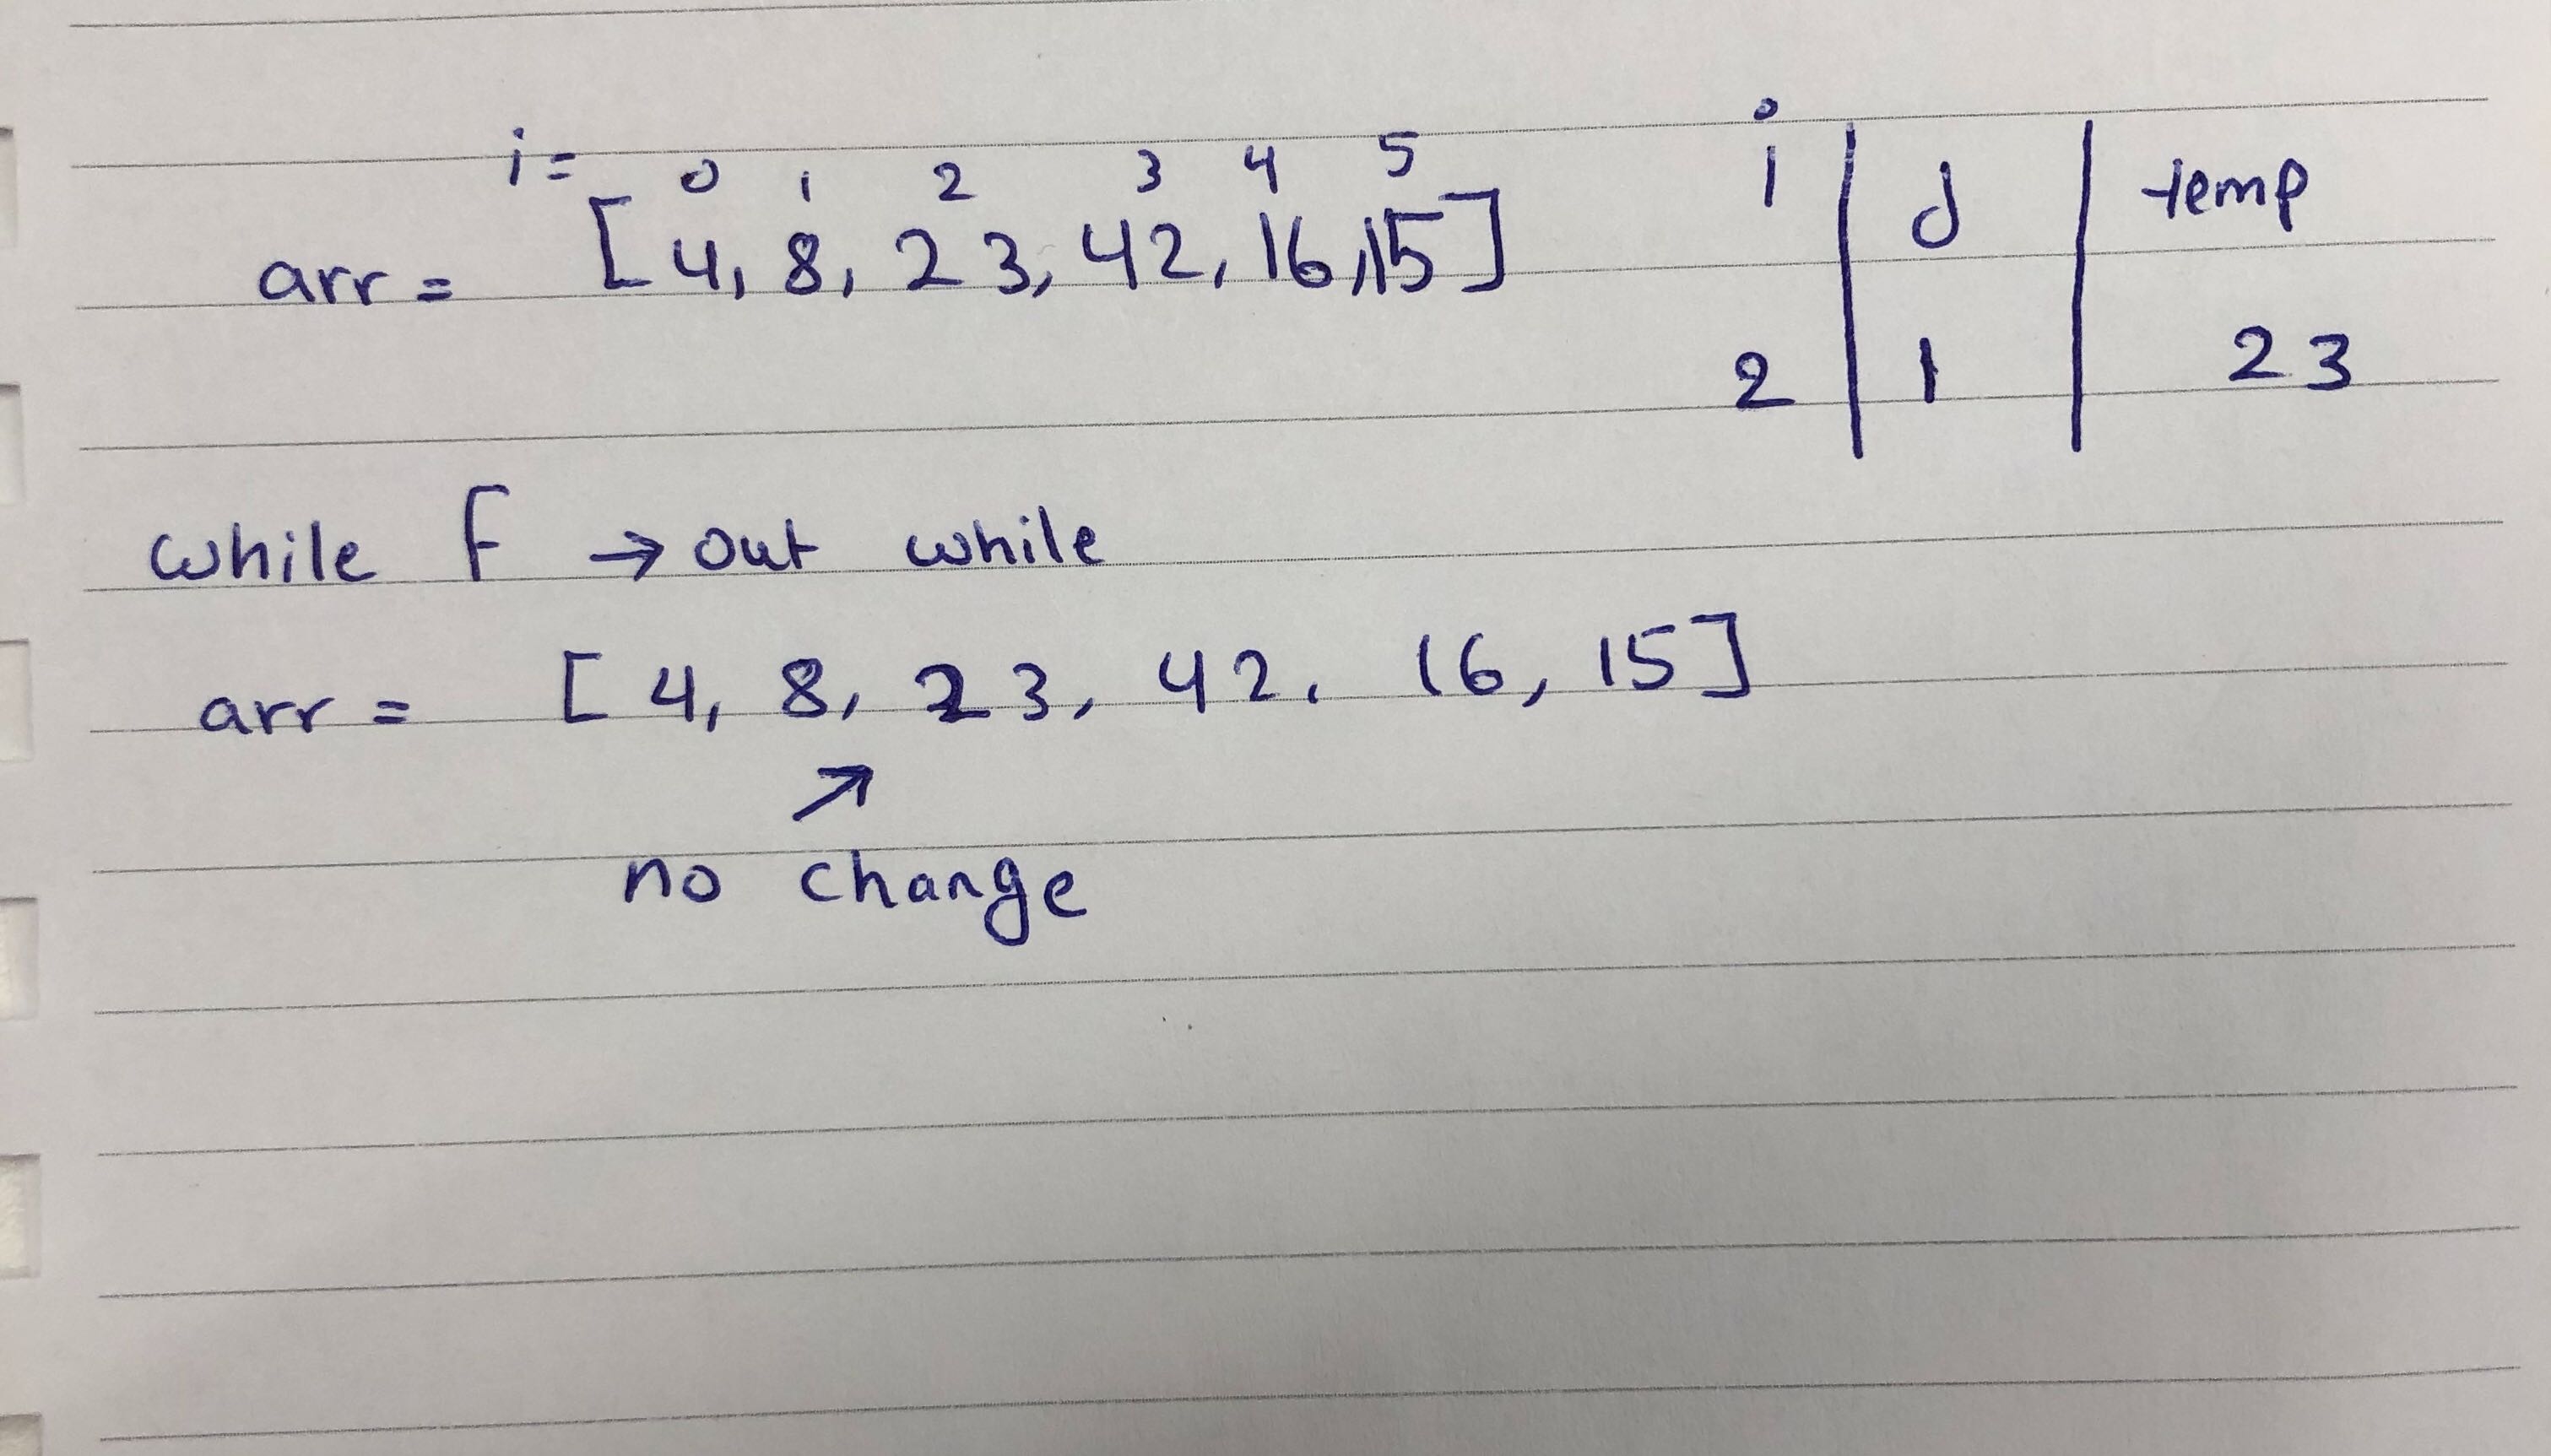 i= 0 1 2 3 4 5
arr= [4, 8, 23, 42, 16, 15]
i j temp
2 1 23
while F → out while
arr = [4, 8, 23, 42, 16, 15]
↗
no change